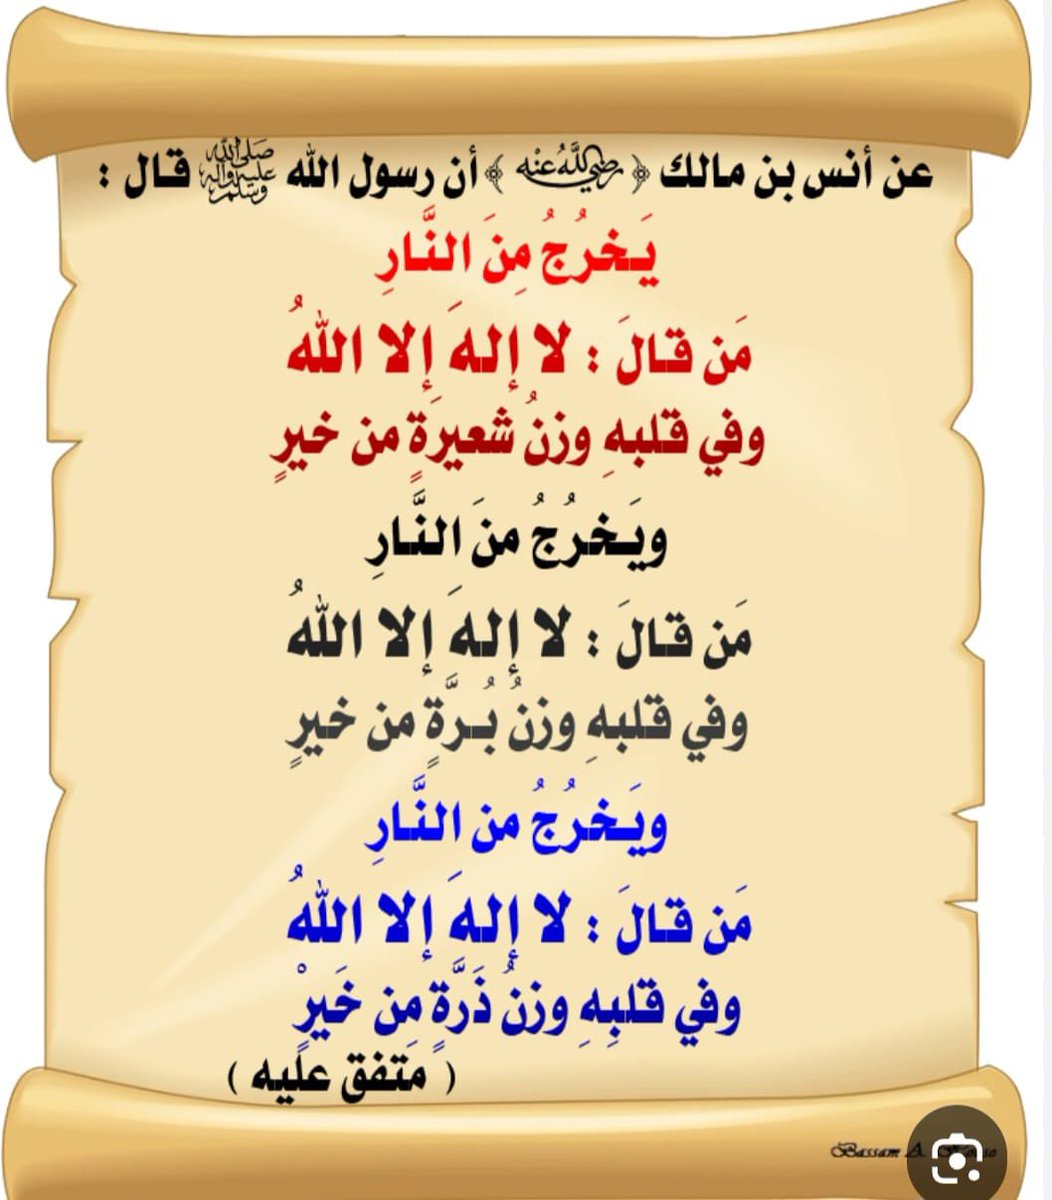 عن أنس بن مالك ﴿رضي الله عنه﴾ أن رسول الله ﷺ قال :
يَـخرُجُ مِنَ النَّـارِ
مَن قـالَ : لا إلهَ إلا اللهُ
وفي قلبهِ وزنُ شعيرَةٍ من خيرٍ
ويَـخرُجُ منَ النَّـارِ
مَن قـالَ : لا إلهَ إلا اللهُ
وفي قلبهِ وزنُ بُـرَّةٍ من خيرٍ
ويَـخرُجُ من النَّـارِ
مَن قـالَ : لا إلهَ إلا اللهُ
وفي قلبِهِ وزنُ ذَرَّةٍ مِن خَيرْ
( متفق عليه )
Bassam A.